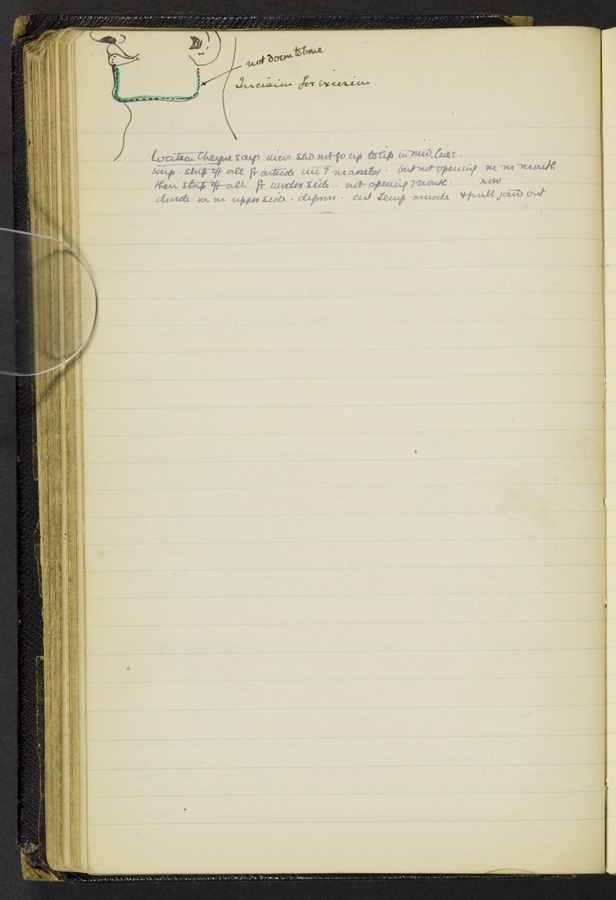 not down to bone
Incision for excision
Watson Cheyne says incis shd not go up to lip in mid line.
says. strip off all fr outside inc masseter. but not opening m m mouth
then strip off all fr under side. not opening mouth. now
divide m m upper side. depress. cut temp muscle & pull jaw out